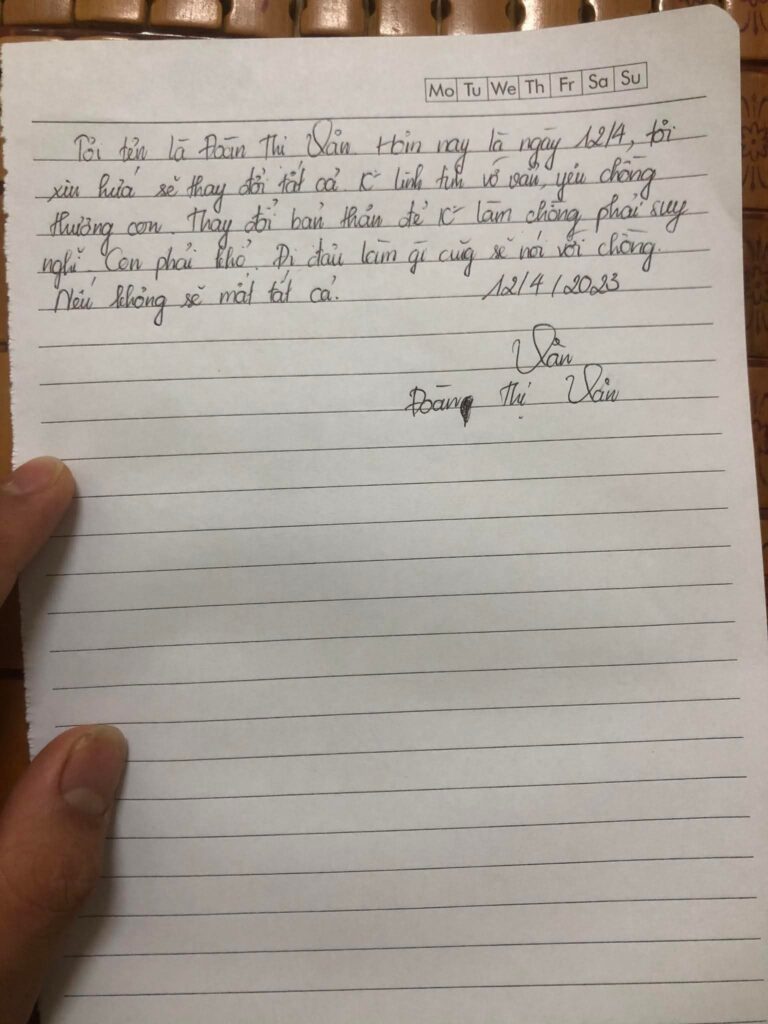 Mo Tu We Th Fr Sa Su
Tôi tên là Đoàn Thị Vân. Hôm nay là ngày 12/4, tôi
xin hứa sẽ thay đổi tất cả K° linh tinh vớ vẩn, yêu chồng
thương con. Thay đổi bản thân để K° làm chồng phải suy
nghĩ. Con phải khổ. Đi đâu làm gì cũg sẽ nói với chồng.
Nếu không sẽ mất tất cả.
12/4/2023
Vân
Đoàn Thị Vân